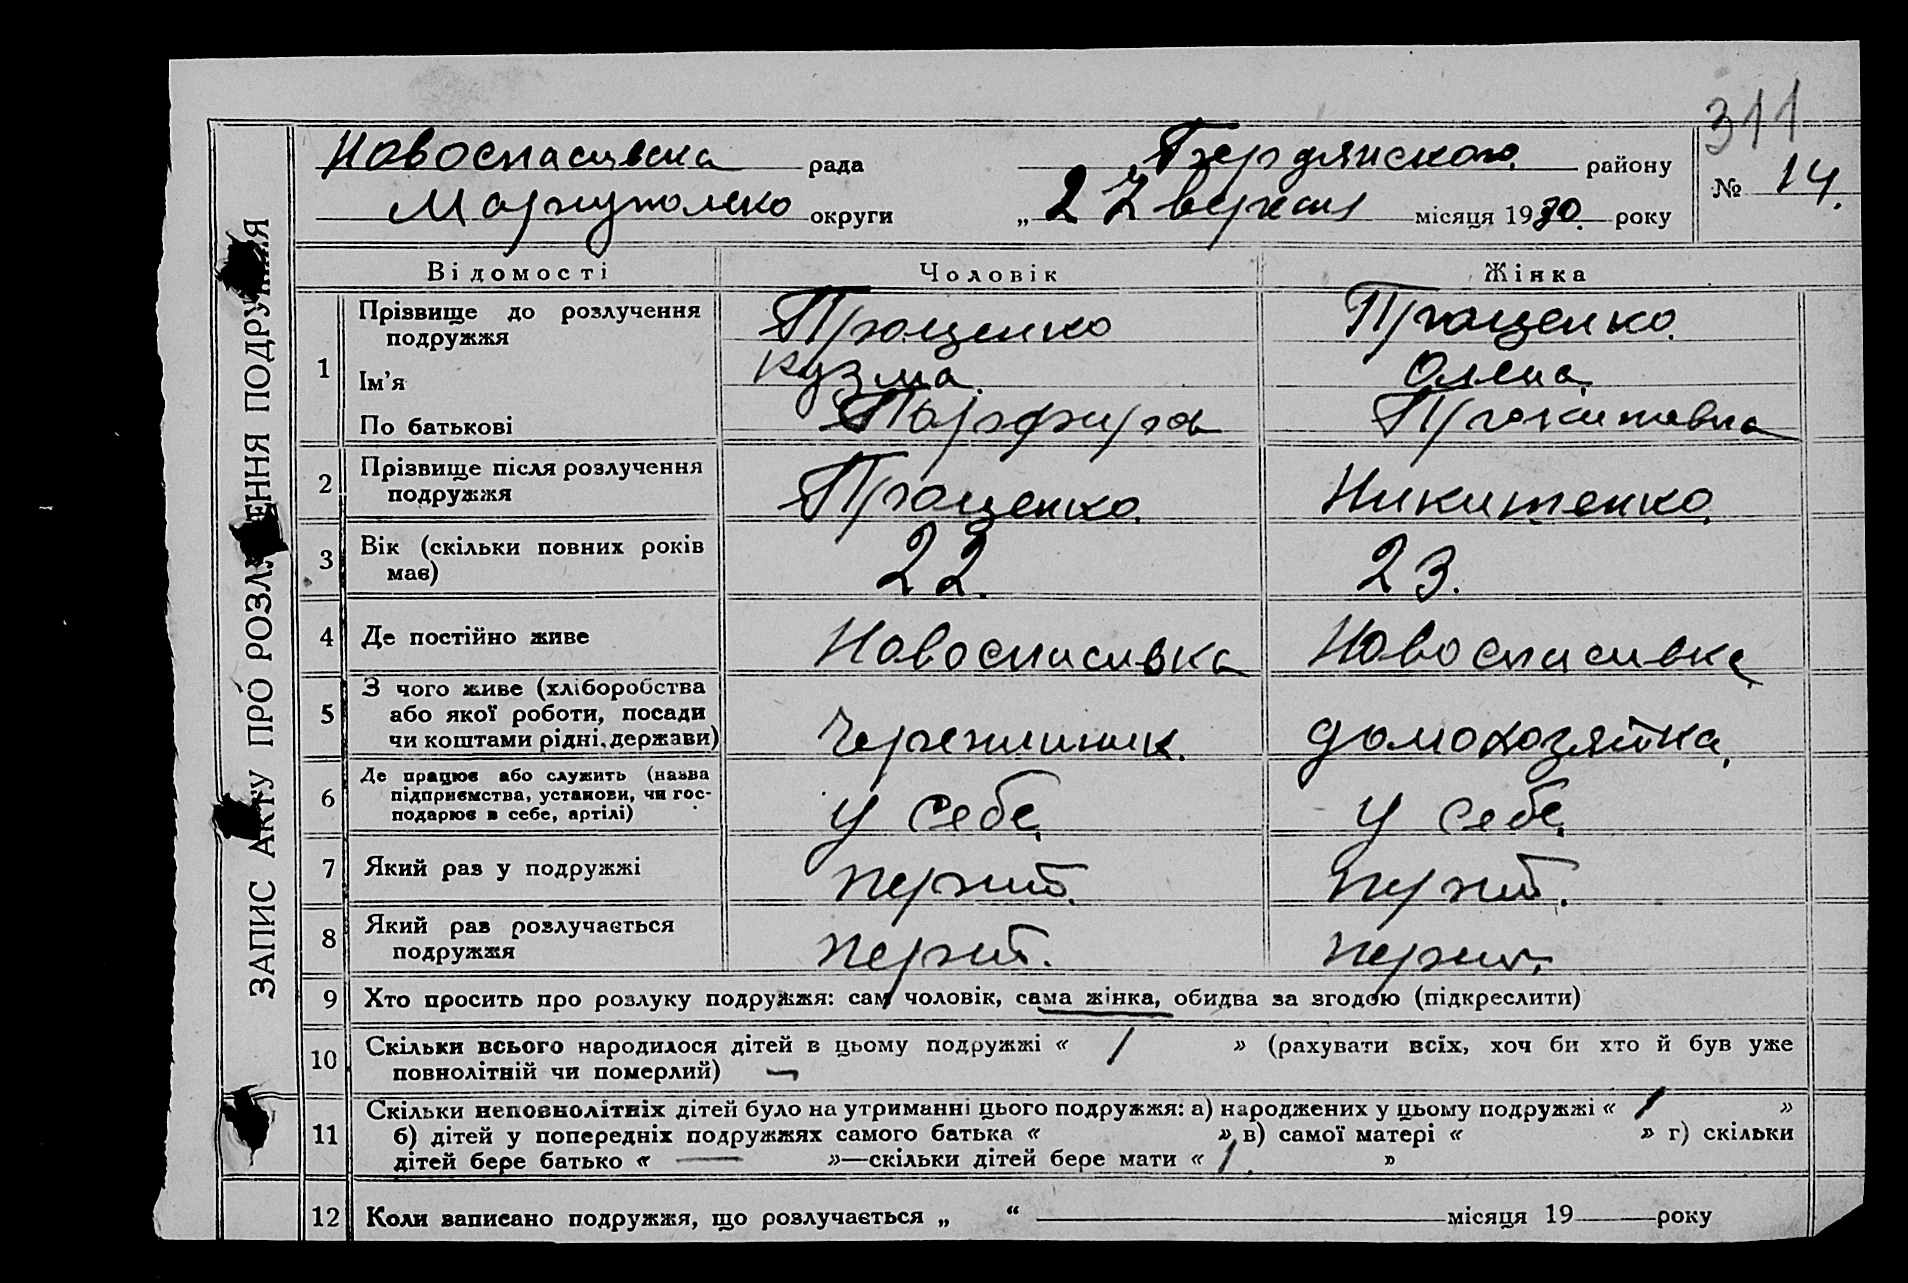 311
Новоспасивска рада Бердянского району № 14.
Мариуполско округи „ 27 вересня місяця 1930. року
ЗАПИС АКТУ ПРО РОЗЛУЧЕННЯ ПОДРУЖЖЯ
Відомості Чоловік Жінка
1 Прізвище до розлучення подружжя Проценко Проценко.
Ім’я Кузма. Олена.
По батькові Парфиров
2 Прізвище після розлучення подружжя Проценко. Никитенко.
3 Вік (скільки повних років має) 22. 23.
4 Де постійно живе Новоспасивка Новоспасивка
5 З чого живе (хліборобства або якої роботи, посади чи коштами рідні, держави) домохозяйка
6 Де працює або служить (назва підприємства, установи, чи господарює в себе, артілі) у себе у себе
7 Який раз у подружжі перший. перший.
8 Який раз розлучається подружжя перший. перший.
9 Хто просить про розлуку подружжя: сам чоловік, сама жінка, обидва за згодою (підкреслити)
10 Скільки всього народилося дітей в цьому подружжі « 1 » (рахувати всіх, хоч би хто й був уже
повнолітній чи померлий)
11 Скільки неповнолітніх дітей було на утриманні цього подружжя: а) народжених у цьому подружжі « 1 »
б) дітей у попередніх подружжях самого батька « » в) самої матері « » г) скільки
дітей бере батько « — »—скільки дітей бере мати « 1. »
12 Коли записано подружжя, що розлучається „ “ місяця 19 року